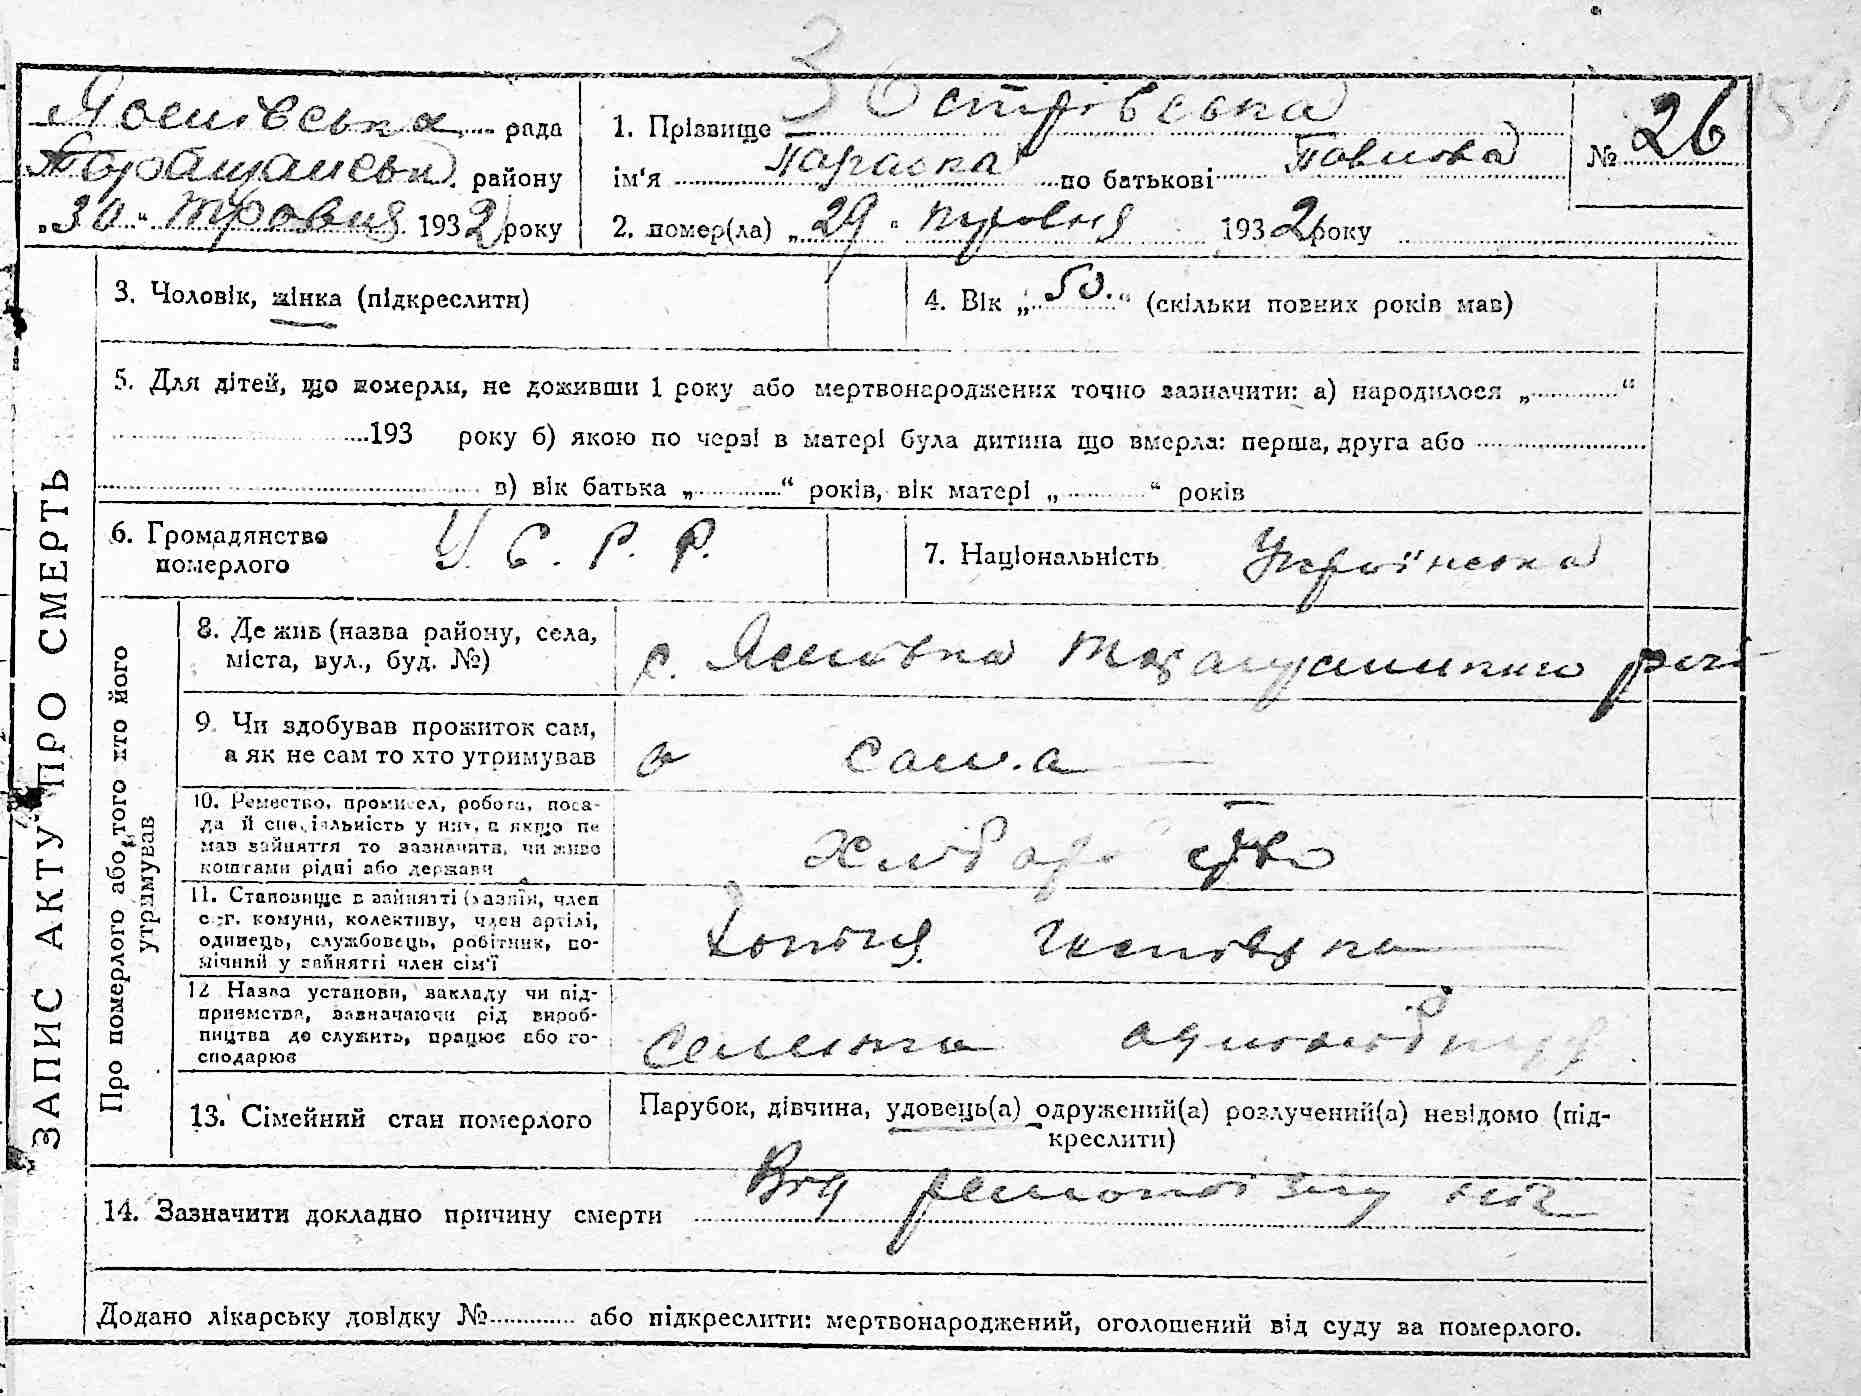 3
рада
району
„30“ Травня 1932 року
1. Прізвище Острівська
ім'я Параска по батькові Павлова
2. помер(ла) „29“ травня 1932 року
№ 26
ЗАПИС АКТУ ПРО СМЕРТЬ
3. Чоловік, жінка (підкреслити)
4. Вік „50.“ (скільки повних років мав)
5. Для дітей, що померли, не доживши 1 року або мертвонароджених точно зазначити: а) народилося „ “
193 року б) якою по черзі в матері була дитина що вмерла: перша, друга або
в) вік батька „ “ років, вік матері „ “ років
6. Громадянство
померлого
У. С. Р. Р.
7. Національність Українська
Про померлого або того хто його
утримував
8. Де жив (назва району, села,
міста, вул., буд. №)
с. Яснівка
9. Чи здобував прожиток сам,
а як не сам то хто утримував
сама
10. Ремество, промисел, робота, поса-
да й спеціяльність у них, а якщо не
мав зайняття то зазначити, чи живе
коштами рідні або держави
хлібороб ство
11. Становище в зайнятті (хазяїн, член
с.-г. комуни, колективу, член артілі,
одинець, службовець, робітник, по-
мічний у зайнятті член сім'ї
12 Назва установи, закладу чи під-
приємства, зазначаючи рід вироб-
ництва де служить, працює або го-
сподарює
13. Сімейний стан померлого
Парубок, дівчина, удовець(а) одружений(а) розлучений(а) невідомо (під-
креслити)
14. Зазначити докладно причину смерти Від ніг
Додано лікарську довідку № або підкреслити: мертвонароджений, оголошений від суду за померлого.